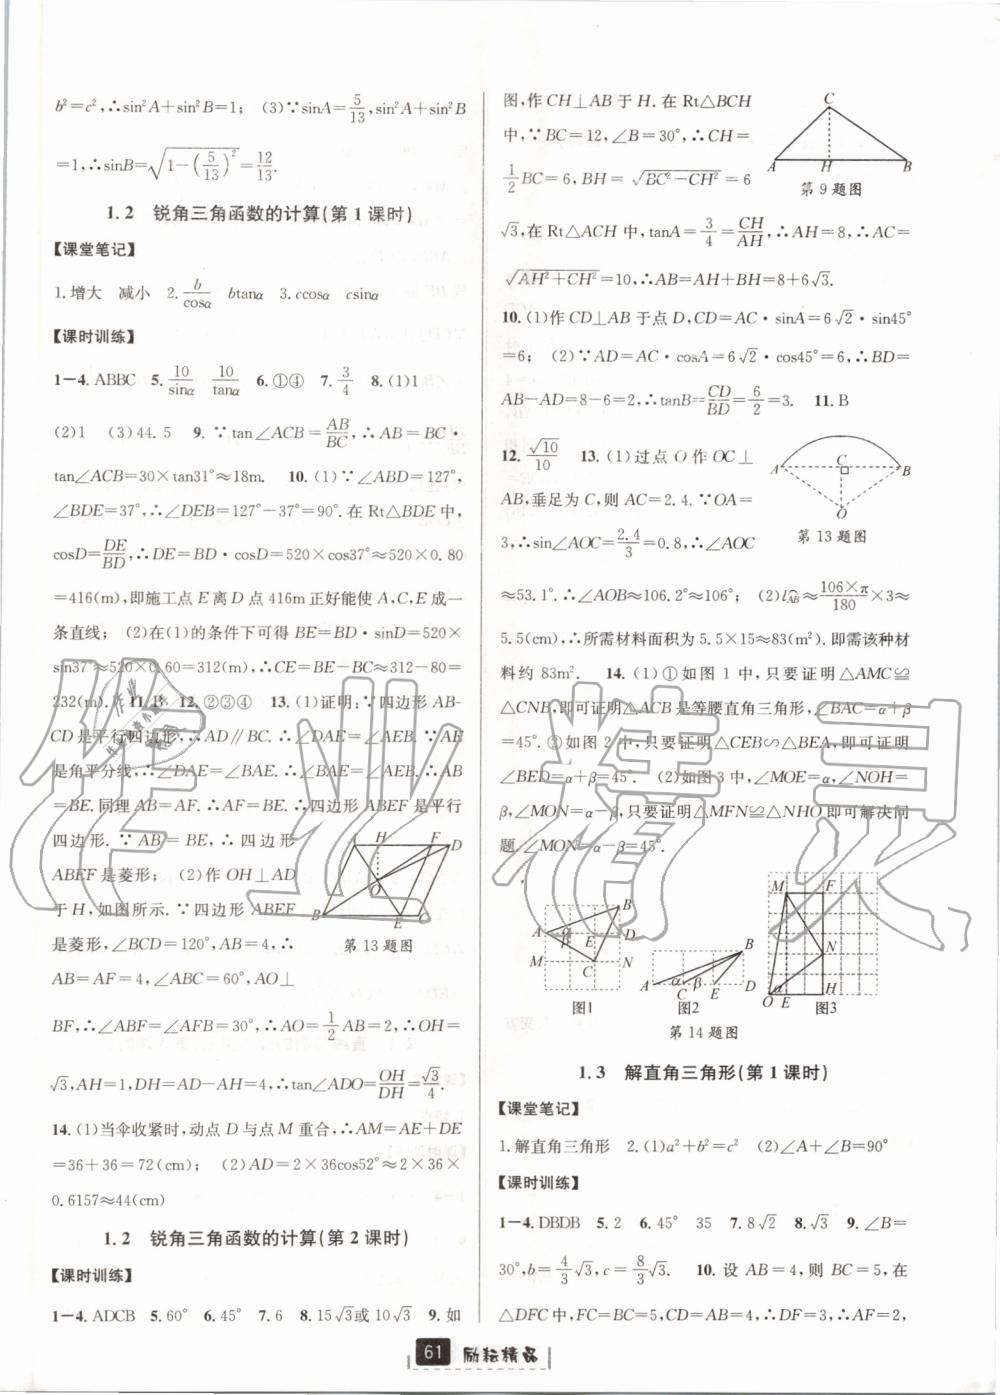 b²=c²,∴sin²A+sin²B=1; (3)∵sinA=5/13,sin²A+sin²B
=1,∴sinB=√(1-(5/13)²)=12/13.
1.2 锐角三角函数的计算(第1课时)
【课堂笔记】
1.增大 减小 2.b/cosα btanα 3.ccosα csinα
【课时训练】
1-4.ABBC 5.10/sinα 10/tanα 6.①④ 7.3/4 8.(1)1
(2)1 (3)44.5 9.∵tan∠ACB=AB/BC,∴AB=BC·
tan∠ACB=30×tan31°≈18m. 10.(1)∵∠ABD=127°,
∠BDE=37°,∴∠DEB=127°-37°=90°.在Rt△BDE中,
cosD=DE/BD,∴DE=BD·cosD=520×cos37°≈520×0.80
=416(m),即施工点E离D点416m正好能使A,C,E成一
条直线; (2)在(1)的条件下可得BE=BD·sinD=520×
sin37°≈520×0.60=312(m),∴CE=BE-BC=312-80=
232(m). 11. 12.②③④ 13.(1)证明:∵四边形AB-
CD是平行四边形,∴AD∥BC.∴∠DAE=∠AEB.∵AE
是角平分线,∴∠DAE=∠BAE.∴∠BAE=∠AEB.∴AB
=BE.同理AB=AF.∴AF=BE.∴四边形ABEF是平行
四边形.∵AB=BE,∴四边形
ABEF是菱形; (2)作OH⊥AD
于H,如图所示.∵四边形ABEF
是菱形,∠BCD=120°,AB=4,∴
AB=AF=4,∠ABC=60°,AO⊥
A H F D
O
B E C
第13题图
BF,∴∠ABF=∠AFB=30°,∴AO=1/2AB=2,∴OH=
√3,AH=1,DH=AD-AH=4,∴tan∠ADO=OH/DH=√3/4.
14.(1)当伞收紧时,动点D与点M重合,∴AM=AE+DE
=36+36=72(cm); (2)AD=2×36cos52°≈2×36×
0.6157≈44(cm)
1.2 锐角三角函数的计算(第2课时)
【课时训练】
1-4.ADCB 5.60° 6.45° 7.6 8.15√3或10√3 9.如
图,作CH⊥AB于H.在Rt△BCH
中,∵BC=12,∠B=30°,∴CH=
1/2BC=6,BH=√(BC²-CH²)=6
C
A H B
第9题图
√3,在Rt△ACH中,tanA=3/4=CH/AH,∴AH=8,∴AC=
√(AH²+CH²)=10,∴AB=AH+BH=8+6√3.
10.(1)作CD⊥AB于点D,CD=AC·sinA=6√2·sin45°
=6; (2)∵AD=AC·cosA=6√2·cos45°=6,∴BD=
AB-AD=8-6=2,∴tanB=CD/BD=6/2=3. 11.B
12.√10/10 13.(1)过点O作OC⊥
AB,垂足为C,则AC=2.4.∵OA=
3,∴sin∠AOC=2.4/3=0.8,∴∠AOC
A C B
O
第13题图
≈53.1°.∴∠AOB≈106.2°≈106°; (2)l⌒AB≈106×π/180×3≈
5.5(cm),∴所需材料面积为5.5×15≈83(m²).即需该种材
料约83m². 14.(1)①如图1中,只要证明△AMC≌
△CNB,即可证明△ACB是等腰直角三角形,∠BAC=α+β
=45°.②如图2中,只要证明△CEB∽△BEA,即可证明
∠BED=α+β=45°. (2)如图3中,∠MOE=α,∠NOH=
β,∠MON=α-β,只要证明△MFN≌△NHO即可解决问
题.∠MON=α-β=45°.
B
A α β E D
M C N
图1
B
A α C β E D
图2
M F
N
O α E H
图3
第14题图
1.3 解直角三角形(第1课时)
【课堂笔记】
1.解直角三角形 2.(1)a²+b²=c² (2)∠A+∠B=90°
【课时训练】
1-4.DBDB 5.2 6.45° 35 7.8√2 8.√3 9.∠B=
30°,b=4/3√3,c=8/3√3. 10.设AB=4,则BC=5,在
△DFC中,FC=BC=5,CD=AB=4,∴DF=3,∴AF=2,
61 励耘精品
作业精灵